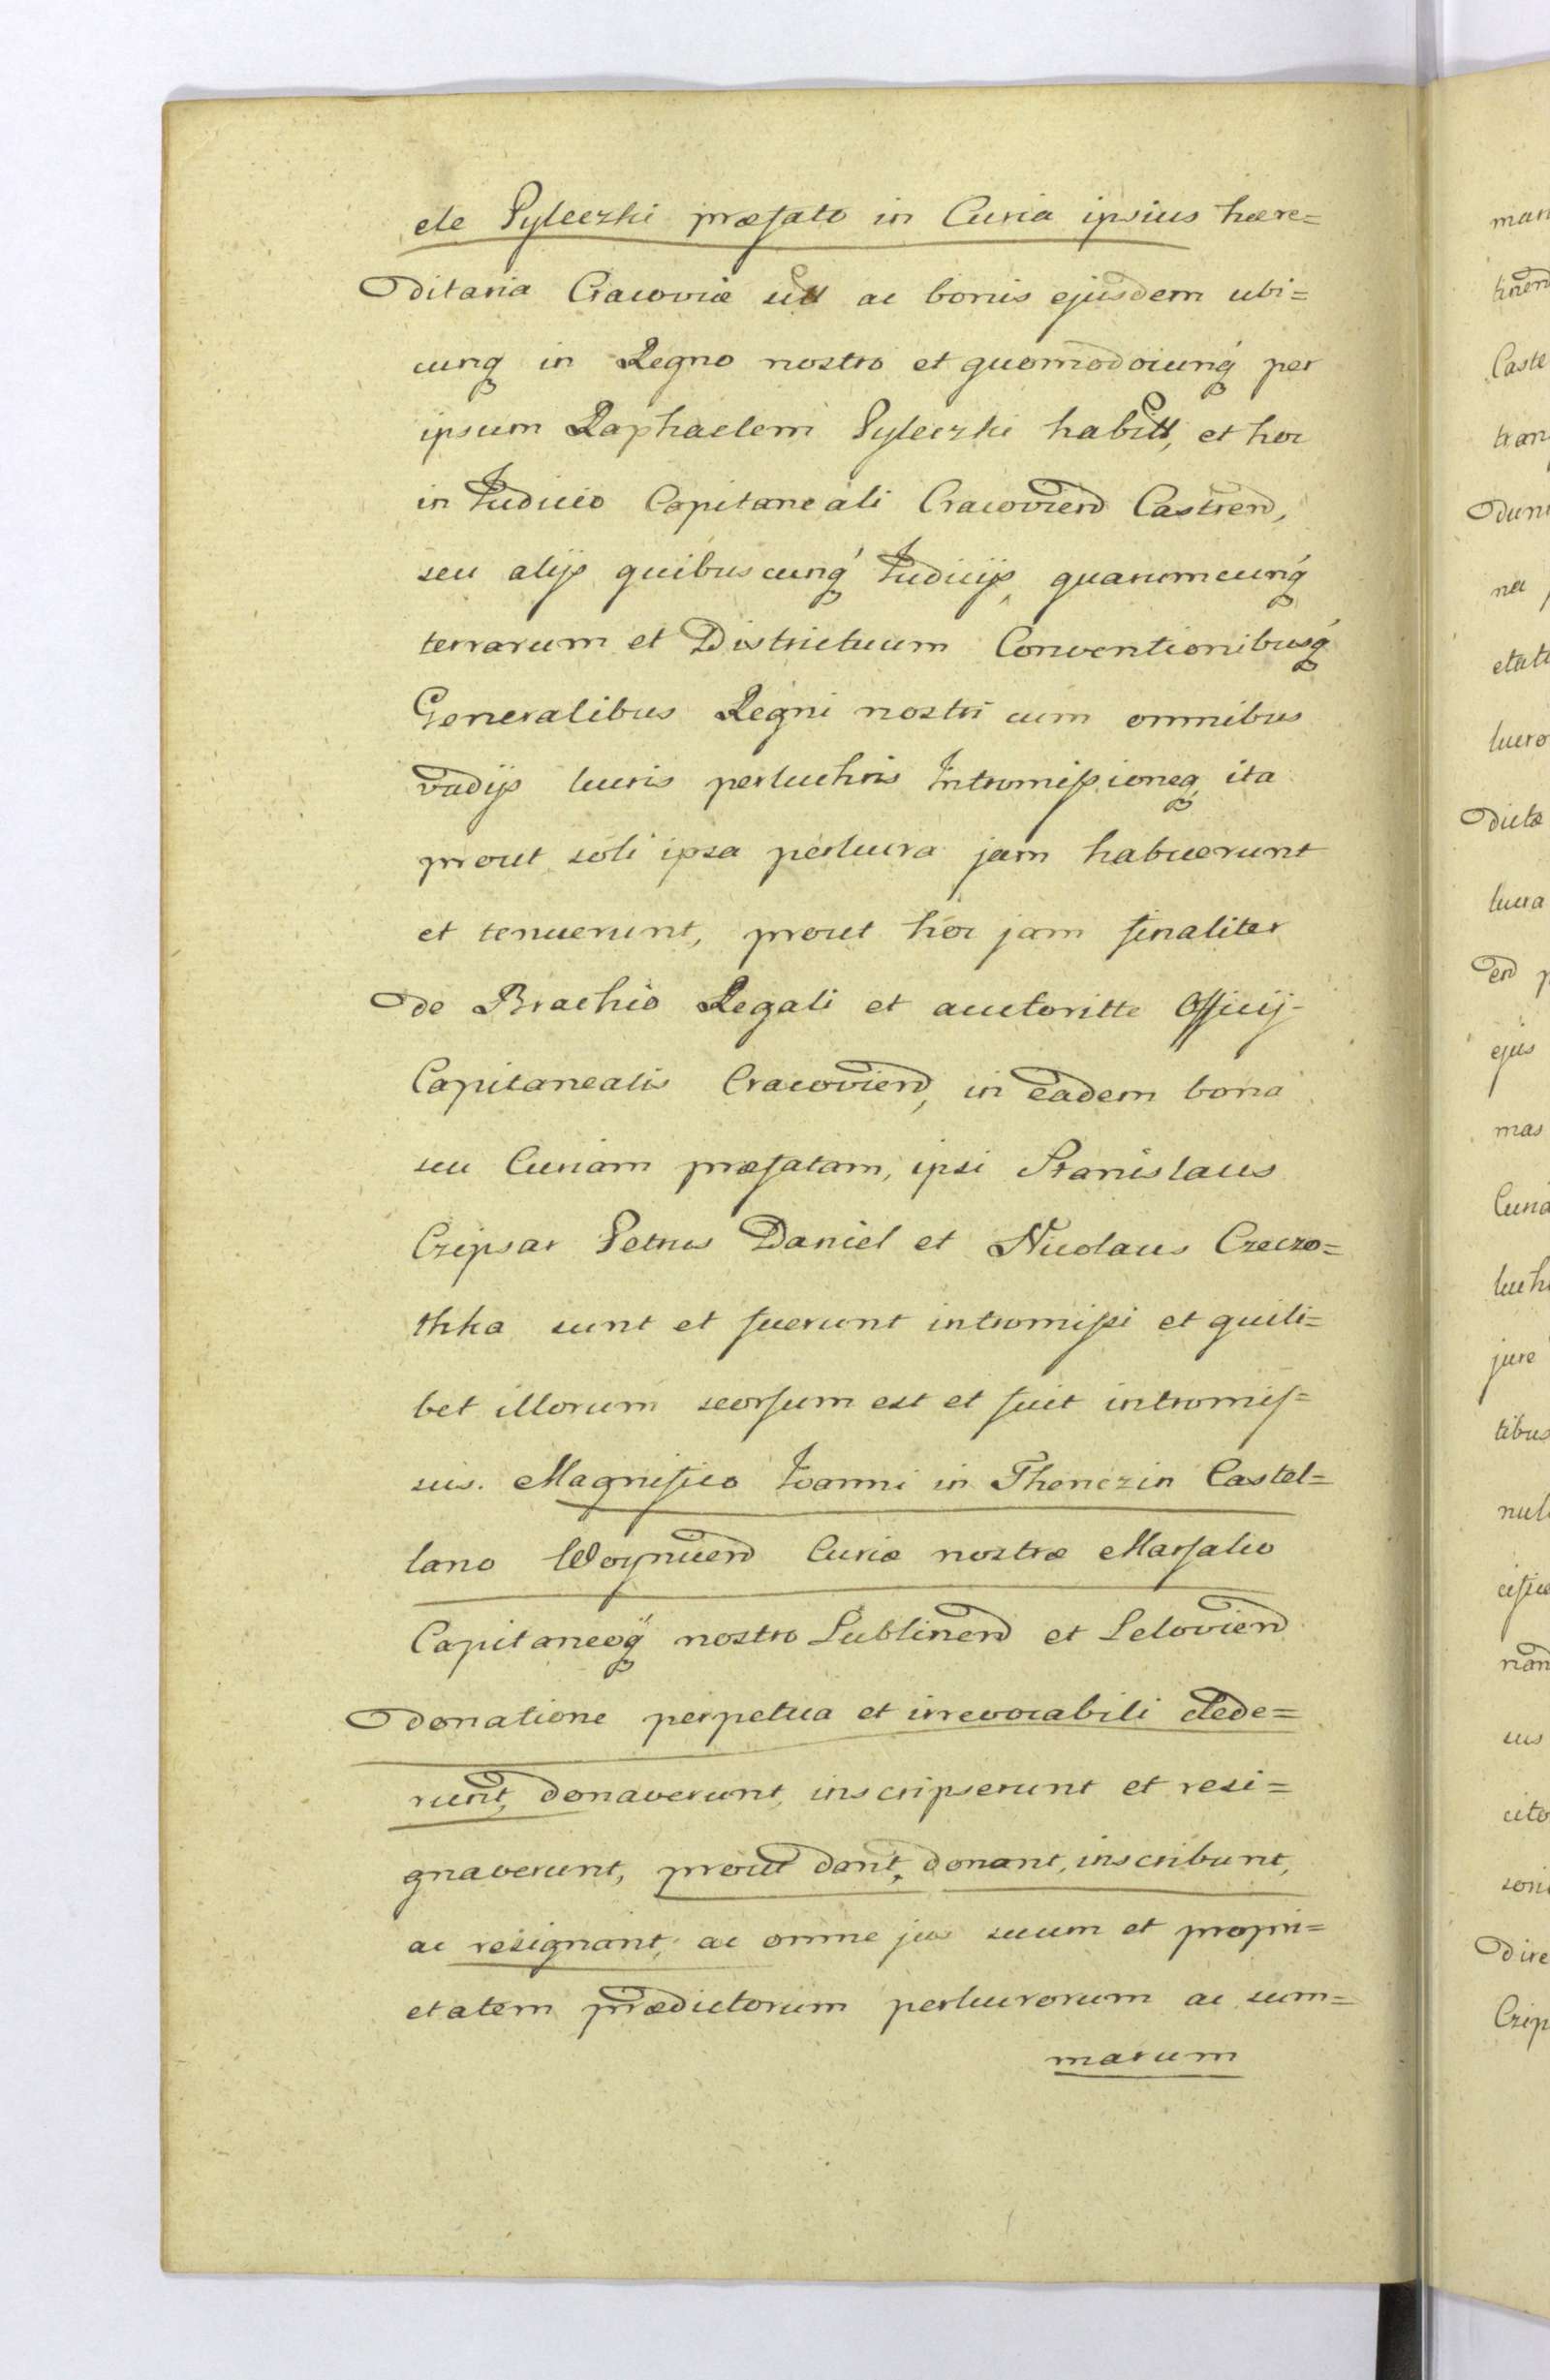 ele Pyleczki præfato in Curia ipsius hære=
ditaria Cracoviæ sitt ac bonis ejusdem ubi=
cunq in Regno nostro et quomodocunq per
ipsum Raphaelem Pyleczki habitt, et hoc
in Iudicio Capitaneali Cracoviend Castrend,
seu alijs quibuscunq Iudicijs, quarumcunq
terrarum et Districtuum Conventionibusq
Generalibus Regni nostri cum omnibus
vadijs lucris perlucris Intromissioneq, ita
prout soli ipsa perlucra jam habuerunt
et tenuerunt, prout hoc jam finaliter
de Brachio Regali et auctoritte Officij
Capitanealis Cracoviend, in eadem bona
seu Curiam præfatam, ipsi Stanislaus
Czipsar Petrus Daniel et Nicolaus Czeczo=
thka sunt et fuerunt intromissi et quili=
bet illorum seorsum est et fuit intromis=
sus. Magnifico Ioanni in Thenczin Castel=
lano Woynicend Curiæ nostræ Marsalco
Capitaneoq nostro Lublinend et Leloviend
donatione perpetua et irrevocabili dede=
runt, donaverunt, inscripserunt et resi=
gnaverunt, prout dant, donant, inscribunt,
ac resignant, ac omne jus suum et propri=
etatem prædictorum perlucrorum ac sum=
marum
man
tinend
Caste
tran
dun
na
etat
lucro
dicta
lucra
end p
ejus
mas
Curia
luch
jure
tibus
nul
nan
sus
cito
dire
Czip